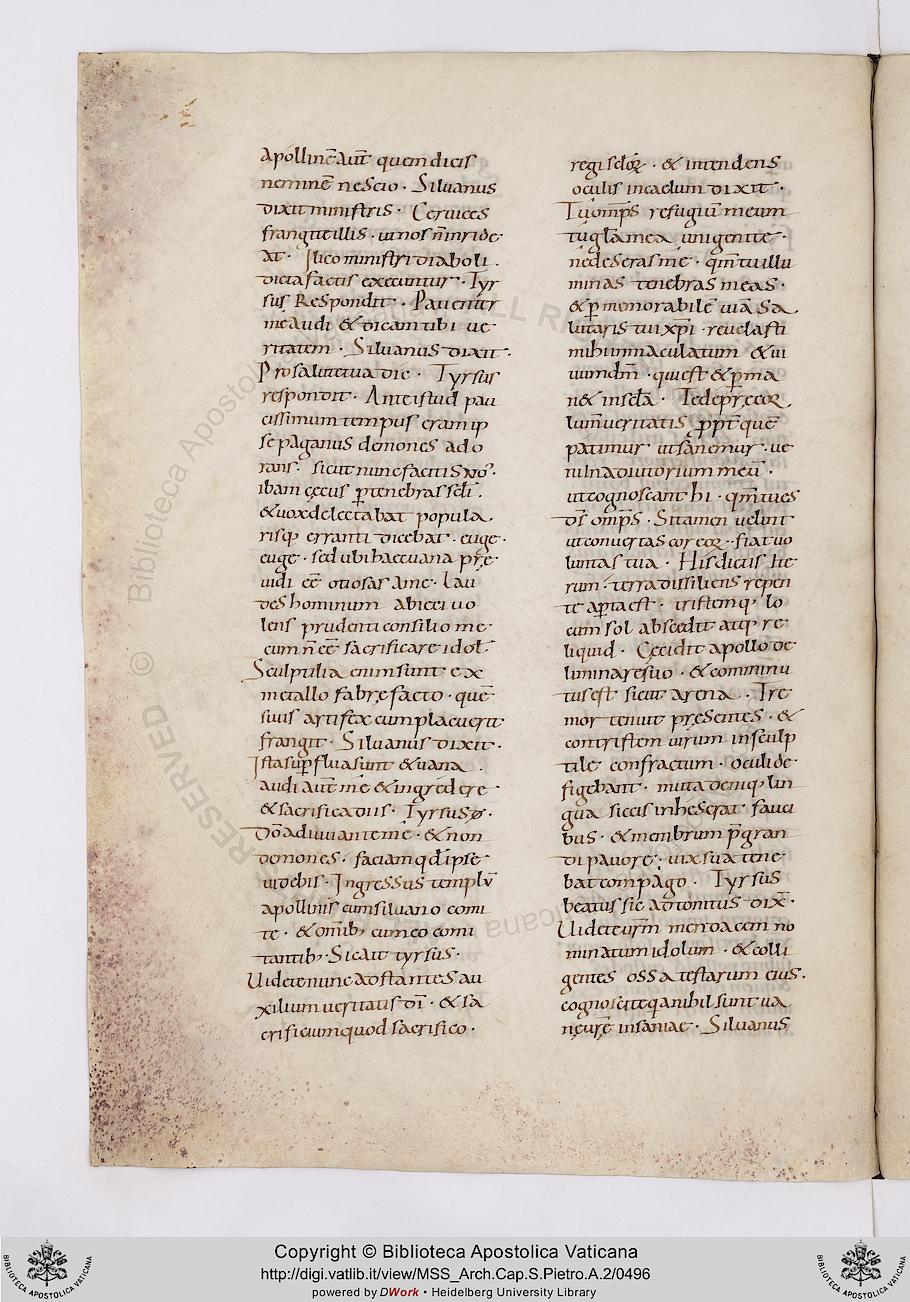 apollinē aut̄ quem dicis
neminē nescio · Siluanus
dixit ministris · Ceruices
frangite illis · ut nos n̄ inride
at · Ilico ministri diaboli ·
dicta factis execuntur · Tyr
sus Respondit · Pauenter
me audi & dicam tibi ue
ritatem · Siluanus dixit ·
Pro salute tua dic · Tyrsus
respondit · Ante istud pau
cissimum tempus eram ip
se paganus demones ado
rans · sicut nunc facitis & uos ·
ibam cęcus p̱ tenebras sc̄li ·
& uox delectabat popula
risq; erranti dicebat · euge ·
euge · sed ubi haec uana prę
uidi eē otiosas a me · lau
des hominum abieci uo
lens prudenti consilio me
cum n̄ eē sacrificare idol̄
Sculptilia enim sunt ex
metallo fabręfacto · quē
suus artifex cum placuerit
frangit · Siluanus dixit ·
Ista sup̱flua sunt & uana ·
audi aut̄ me & ingredere
& sacrifica diis · Tyrsus ꝶ ·
Dō adiuuante me · & non
demones · faciam qd̄ ipse
uidebis · Ingressus templū
apollinis cum siluano comi
te · & omib; cum eo comi
tantib; · Sic ait tyrsus ·
Uidete nunc adstantes au
xilium ueritatis dī · & sa
crificium quod sacrifico ·
regi sc̄loꝝ · & intendens
oculis in caelum dixit ·
Tu omp̄s refugiū meum
tu gl̄a mea unigenite ·
ne deseras me · qm̄ tu illu
minas tenebras meas ·
& p̱ memorabilē uiā sa
lutaris tui xp̄i · reuelasti
mihi inmaculatum & ui
uum dm̄ · qui est & p̱ma
n& in sc̄la · Te deprecor
lum̄ ueritatis ꝓpt̄ quē
patimur ut sanemur · ue
ni in adiutorium meū ·
ut cognoscant hi · qm̄ tu es
ds̄ omp̄s · Si tamen uelint
ut conuertas cor eoꝝ · fiat uo
luntas tua · His dictis ite
rum · terra dissiliens repen
te ap̱ta est · tristemq; lo
cum sol abscedit atq; re
liquid · Cecidit apollo de
liminare suo · & comminu
tus est sicut arena · Tre
mor tenuit pręsentes · &
contristem uirum insculp
tile confractum · oculi de
figebant · muta deniq; lin
gua siccis inheserat fauci
bus · & membrum p̄ gran
di pauore · uix sua tene
bat compago · Tyrsus
beatus sic adtonitus dix̄ ·
Uidete ur̄m meroacem no
minatum idolum · & colli
gentes ossa testarum eius ·
cognoscite q̄a nihil sunt ua
nę uręinsaniae · Siluanus
Copyright © Biblioteca Apostolica Vaticana
http://digi.vatlib.it/view/MSS_Arch.Cap.S.Pietro.A.2/0496
powered by DWork • Heidelberg University Library